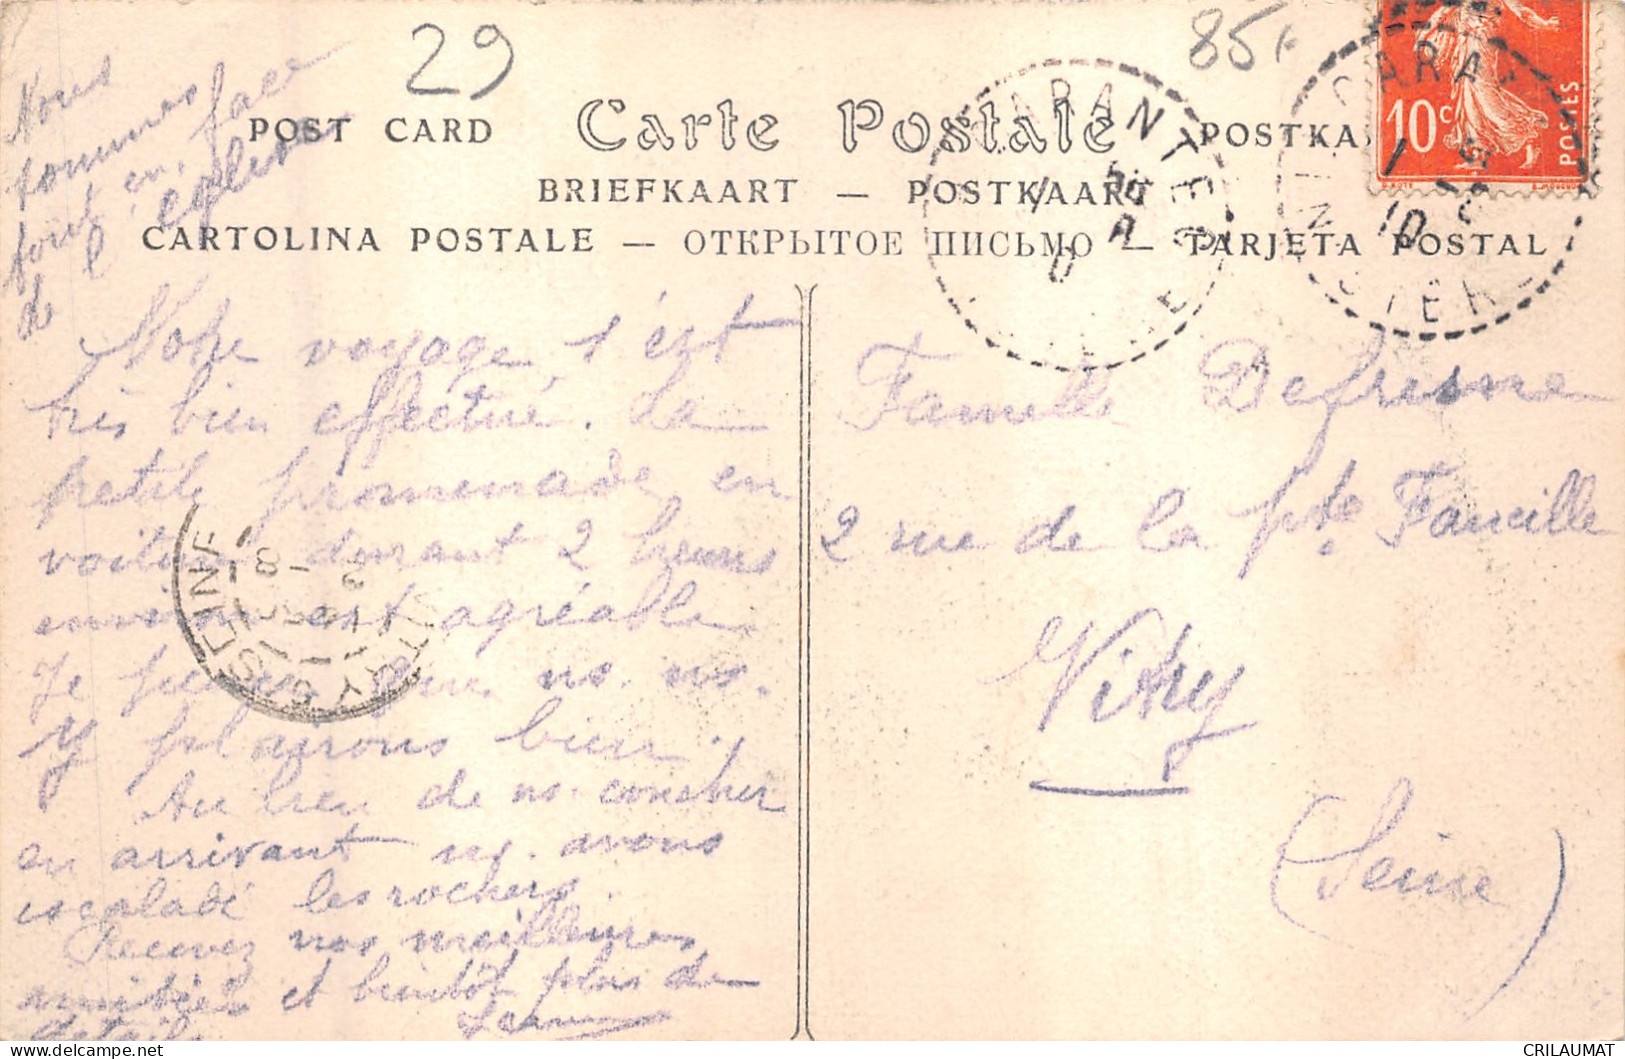 29
85F
Nous
sommes
tout en face
de l'église
POST CARD Carte Postale POSTKA
BRIEFKAART — POSTKAART
CARTOLINA POSTALE — ОТКРЫТОЕ ПИСЬМО — TARJETA POSTAL
10c POSTES
CARANTEC
FINISTERE
Notre voyage s'est
très bien effectué. La
petite promenade en
voiture durant 2 heures
environ est agréable
Je pense que ns. ns.
y plairons bien.
Au lieu de ns. coucher
en arrivant ns. avons
escaladé les rochers.
Recevez vos meilleures
amitiés et bientôt plus de
détails
VITRY S SEINE
Famille Defresne
2 rue de la pte Faucille
Vitry
(Seine)
CRILAUMAT